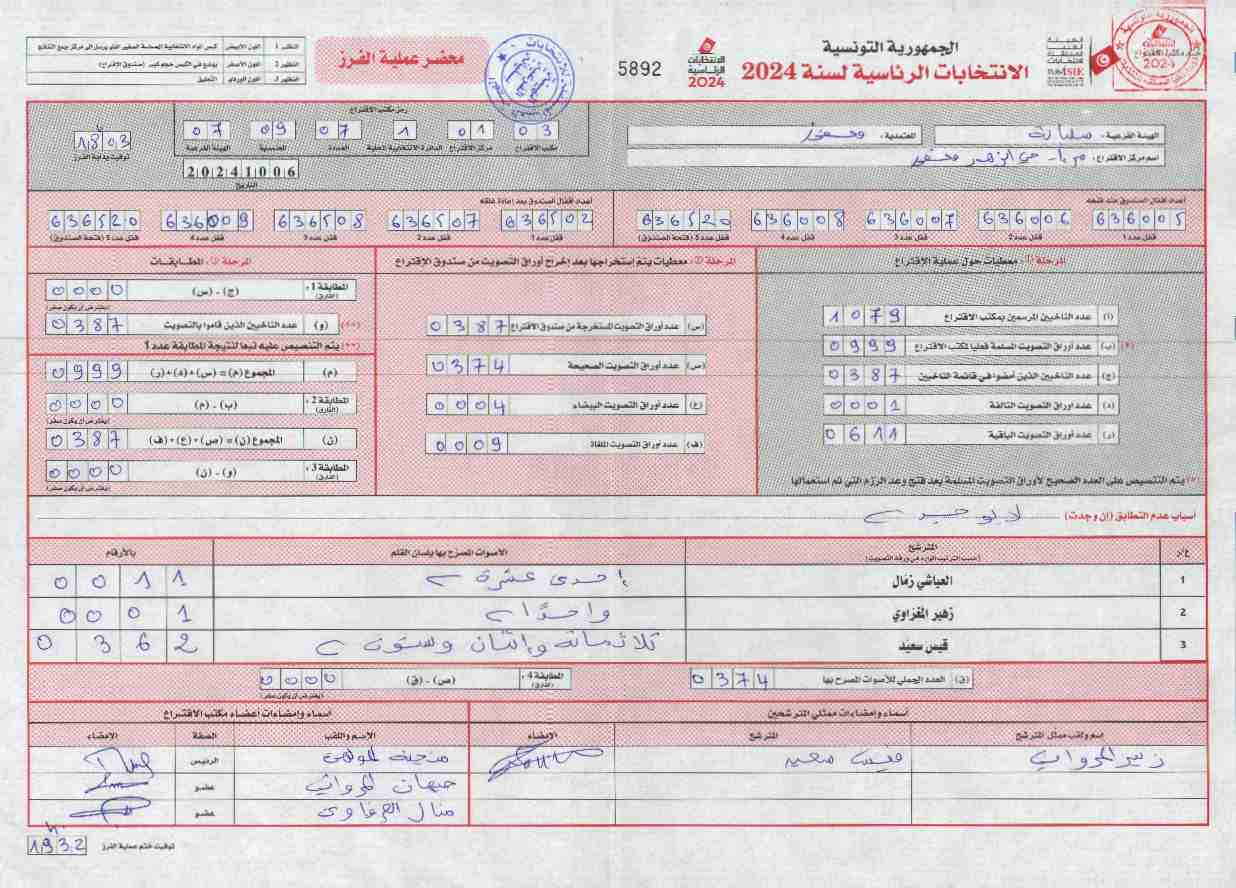 الجمهورية التونسية
الانتخابات الرئاسية لسنة 2024
الانتخابات الرئاسية 2024
5892
محضر عملية الفرز
النظير 1 اللون الأبيض
النظير 2 اللون الأصفر
النظير 3 اللون الوردي التعليق
الهيئة الفرعية : سليانة
المعتمدية :
اسم مركز الاقتراع :
رمز مكتب الاقتراع
03 01 1 07 09 07
مكتب الاقتراع مركز الاقتراع الدائرة الانتخابية المحلية العمادة المعتمدية الهيئة الفرعية
1803
توقيت بداية الفرز
20241006
التاريخ
أعداد أقفال الصندوق عند فتحه
636005 636006 636007 636008 636520
قفل عدد 1 قفل عدد 2 قفل عدد 3 قفل عدد 4 قفل عدد 5 (فتحة الصندوق)
أعداد أقفال الصندوق بعد إعادة غلقه
636502 636507 636508 636009 636520
قفل عدد 1 قفل عدد 2 قفل عدد 3 قفل عدد 4 قفل عدد 5 (فتحة الصندوق)
المرحلة 1: معطيات حول عملية الاقتراع
(أ) عدد الناخبين المرسمين بمكتب الاقتراع 1079
(*) (ب) عدد أوراق التصويت المسلمة فعليا لمكتب الاقتراع 0999
(ج) عدد الناخبين الذين أمضوا في قائمة الناخبين 0387
(د) عدد أوراق التصويت التالفة 0001
(ر) عدد أوراق التصويت الباقية 0611
(*) يتم التنصيص على العدد الصحيح لأوراق التصويت المسلمة بعد فتح وعد الرزم التي تم استعمالها
المرحلة 2: معطيات يتم إستخراجها بعد إخراج أوراق التصويت من صندوق الاقتراع
(س) عدد أوراق التصويت المستخرجة من صندوق الاقتراع 0387
(ص) عدد أوراق التصويت الصحيحة 0374
(ع) عدد أوراق التصويت البيضاء 0004
(ف) عدد أوراق التصويت الملغاة 0009
المرحلة 3: المطابقات
المطابقة 1: (الفارق) (ج) - (س) 0000
(يفترض أن يكون صفر)
(**) (و) عدد الناخبين الذين قاموا بالتصويت 0387
(**) يتم التنصيص عليه تبعا لنتيجة المطابقة عدد 1
(م) المجموع (م) = (س)+(د)+(ر) 0999
المطابقة 2: (الفارق) (ب) - (م) 0000
(يفترض أن يكون صفر)
(ن) المجموع (ن) = (ص)+(ع)+(ف) 0387
المطابقة 3: (الفارق) (و) - (ن) 0000
(يفترض أن يكون صفر)
أسباب عدم التطابق (إن وجدت) لا يوجد
ع/ر المترشح (حسب الترتيب الوارد في ورقة التصويت) الأصوات المصرح بها بلسان القلم بالأرقام
1 العياشي زمال إحدى عشرة 0011
2 زهير المغزاوي واحدا 0001
3 قيس سعيد ثلاثمائة وإثنان وستون 0362
(ق) العدد الجملي للأصوات المصرح بها 0374
المطابقة 4: (الفارق) (ص) - (ق) 0000
(يفترض أن يكون صفر)
أسماء وإمضاءات ممثلي المترشحين
إسم ولقب ممثل المترشح المترشح الإمضاء
قيس سعيد
أسماء وإمضاءات أعضاء مكتب الاقتراع
الإسم واللقب الصفة الإمضاء
الرئيس
عضو
منال عضو
توقيت ختم عملية الفرز 1932